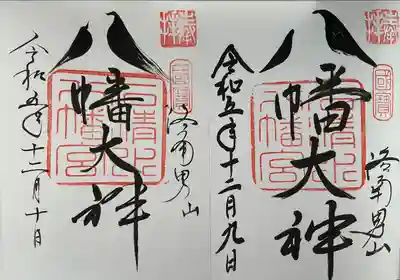 奉拝
国宝
八幡大神
石清水
八幡宮
洛南男山
令和五年十二月九日
奉拝
国宝
八幡大神
石清水
八幡宮
洛南男山
令和五年十二月十日